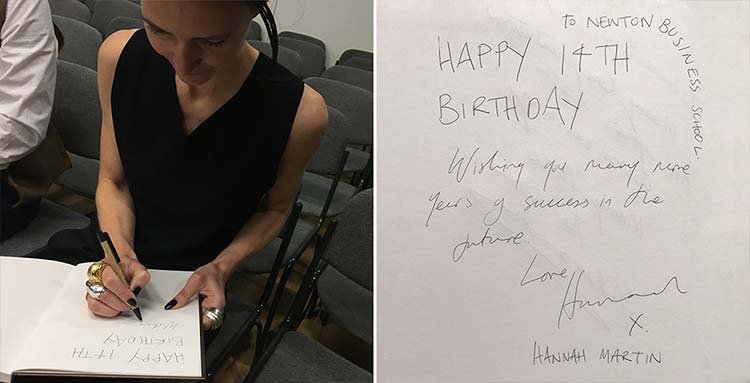 HAPPY 14TH
BIRTHDAY
Wishing
TO NEWTON BUSINESS SCHOOL.
HAPPY 14TH
BIRTHDAY
Wishing you many more
years of success in the
future.
Love
Hannah
X.
HANNAH MARTIN